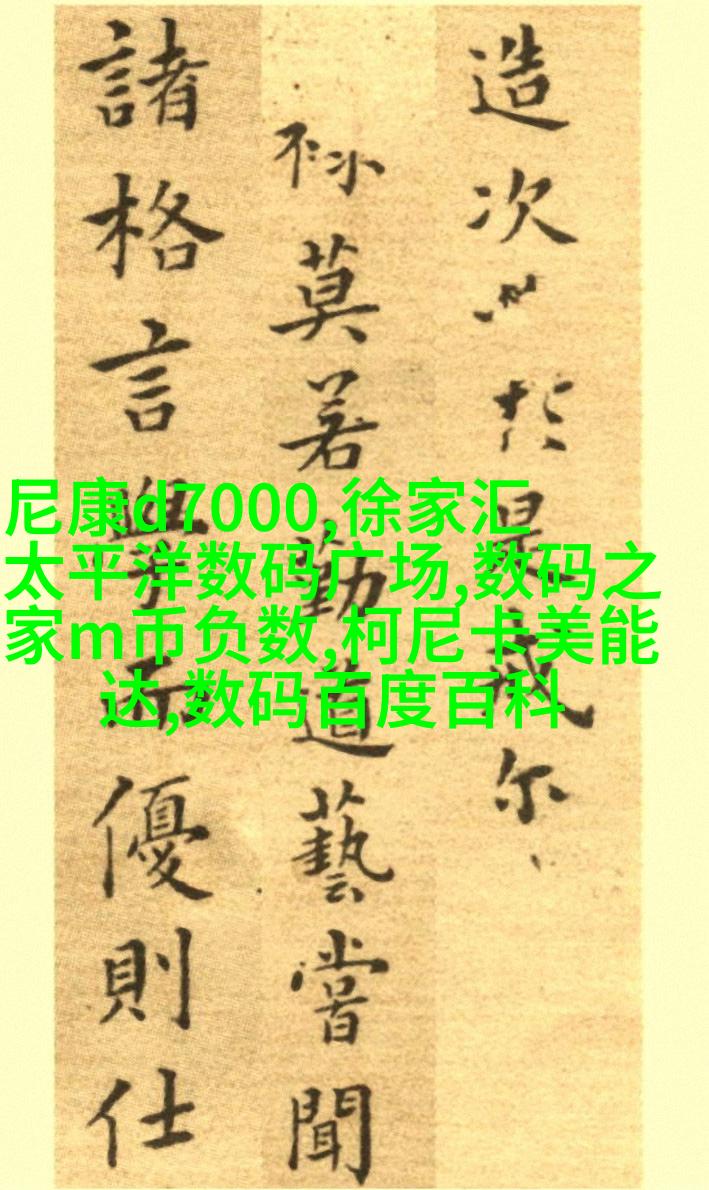 造次
於是戒尔
莫若勤道藝嘗聞
諸格言學而優則仕
尼康d7000,徐家汇
太平洋数码广场,数码之
家m币负数,柯尼卡美能
达,数码百度百科